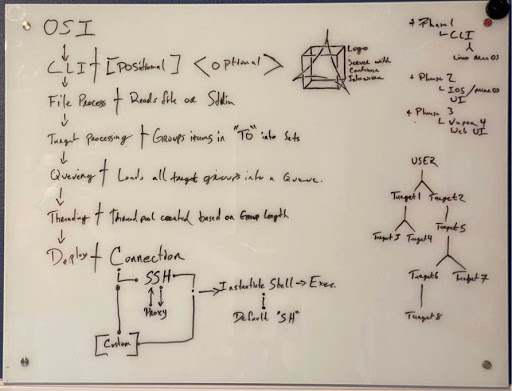 OSI
CLI + [Positional] <optional>
File Process + Reads file or Stdin
Target Processing + Groups items in "TO" into Sets
Queueing + Loads all target groups into a Queue.
Threading + Thread pool created based on Group Length
Deploy + Connection
SSH
Proxy
[Custom]
Instantiate Shell → Exec.
Default "SH"
Logo
Server with
+ Phase 1
CLI
Linux MacOS
+ Phase 2
IOS/macOS
UI
+ Phase 3
Vapor 4
Web UI
USER
Target 1 Target 2
Target 3 Target 4 Target 5
Target 6 Target 7
Target 8